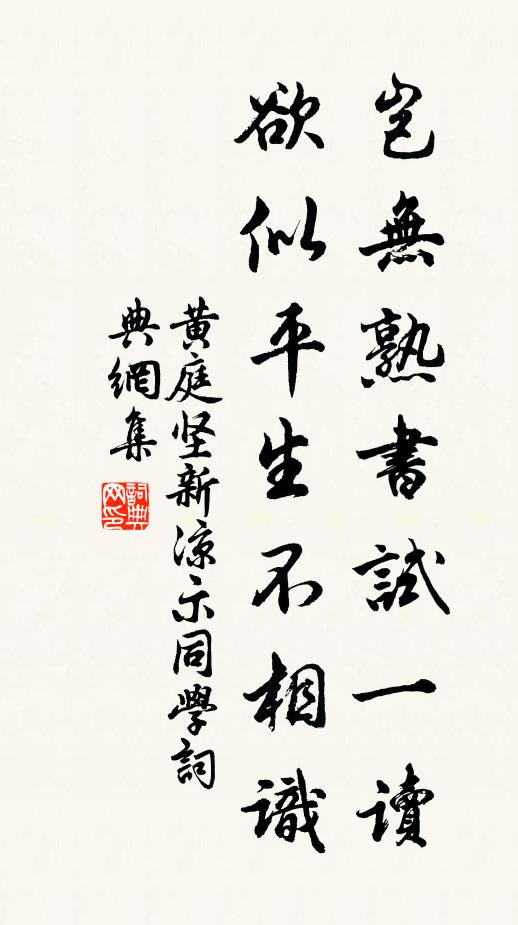 豈無熟書試一讀
欲似平生不相識
黃庭坚新凉示同學詞
典網集
詞典网印